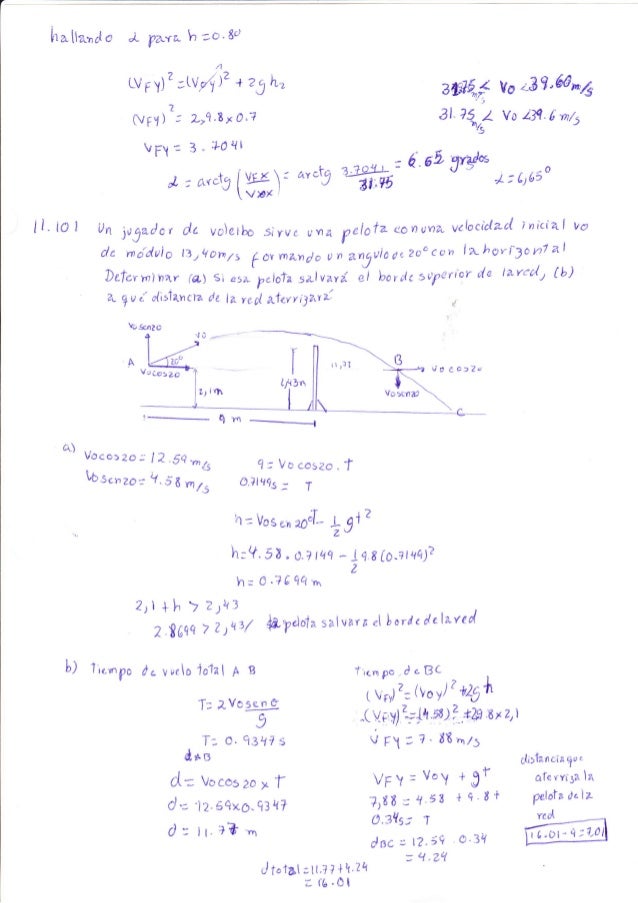 hallando α para h = 0.80
(VFY)² = (VoY)² + 2gh₂
(VFY)² = 2,9.8x0.7
VFY = 3.7041
α = arctg (VFX / Vox) = arctg 3.7041 / 31.75 = 6.65 grados
31.75 m/s < Vo < 39.60 m/s
31.75 m/s < Vo < 39.6 m/s
α = 6,65°
11.101 Un jugador de voleibo sirve una pelota con una velocidad inicial vo
de módulo 13,40m/s formando un angulo de 20° con la horizontal
Determinar (a) Si esa pelota salvará el borde superior de la red, (b)
a qué distancia de la red aterrizará
Vo sen20
vo
A
20°
Vocos20
2,1m
2,43m
11,77
B
Vocos20
Vosen20
C
9 m
a)
Vocos20 = 12.59 m/s
Vosen20 = 4.58 m/s
9 = Vo cos20 . T
0.7149s = T
h = Vosen20T - 1/2 gt²
h = 4.58 . 0.7149 - 1/2 9.8 (0.7149)²
h = 0.7699 m
2,1 + h > 2,43
2.8699 > 2,43/ la pelota salvara el borde de la red
b) Tiempo de vuelo total A B
T = 2Voseno / g
T = 0.9347 s
dAB
d = Vocos20 x T
d = 12.59x0.9347
d = 11.77 m
Tiempo de BC
(VFY)² = (VoY)² + 2gh
(VFY)² = (4.58)² + 29.8x2,1
VFY = 7.88 m/s
VFY = Voy + gt
7,88 = 4.58 + 9.8t
0.34s = T
dBC = 12.59 . 0.34
= 4.24
dtotal = 11.77 + 4.24
= 16.01
distancia que
aterriza la
pelota de la
red
16.01 - 9 = 7.01